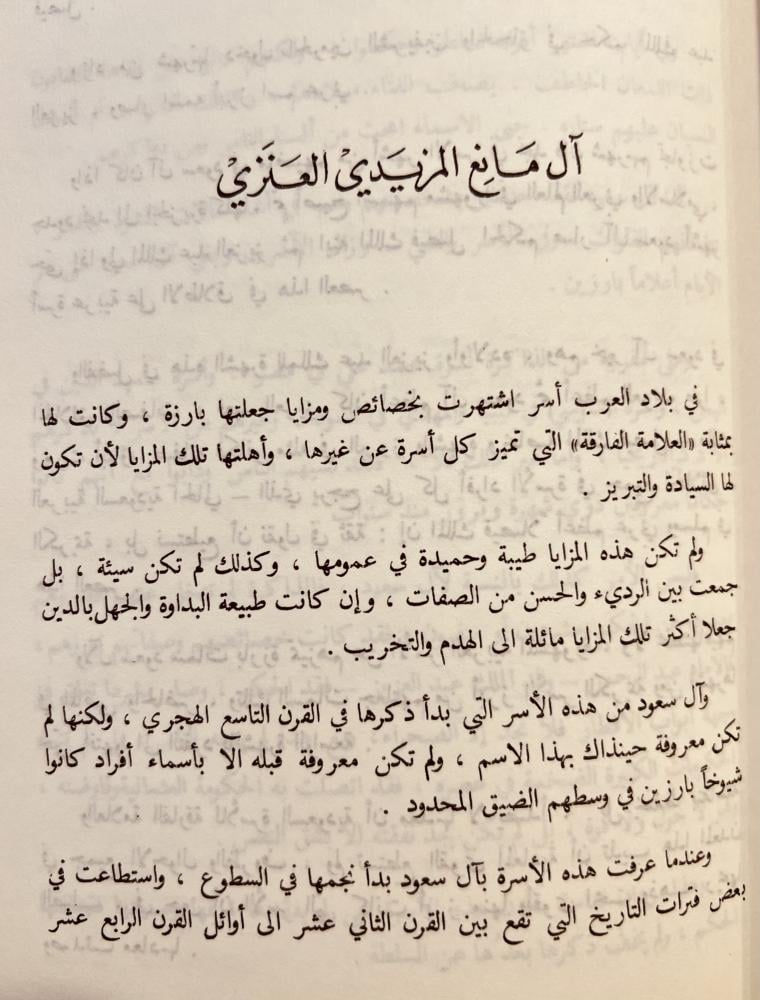 آل مَانِع المزيَديْ العَنَزيْ
في بلاد العرب أسر اشتهرت بخصائص ومزايا جعلتها بارزة ، وكانت لها
بمثابة «العلامة الفارقة» التي تميز كل أسرة عن غيرها ، وأهلتها تلك المزايا لأن تكون
لها السيادة والتبريز .
ولم تكن هذه المزايا طيبة وحميدة في عمومها ، وكذلك لم تكن سيئة ، بل
جمعت بين الرديء والحسن من الصفات ، وإن كانت طبيعة البداوة والجهل بالدين
جعلا أكثر تلك المزايا مائلة الى الهدم والتخريب .
وآل سعود من هذه الأسر التي بدأ ذكرها في القرن التاسع الهجري ، ولكنها لم
تكن معروفة حينذاك بهذا الاسم ، ولم تكن معروفة قبله الا بأسماء أفراد كانوا
شيوخاً بارزين في وسطهم الضيق المحدود .
وعندما عرفت هذه الأسرة بآل سعود بدأ نجمها في السطوع ، واستطاعت في
بعض فترات التاريخ التي تقع بين القرن الثاني عشر الى أوائل القرن الرابع عشر